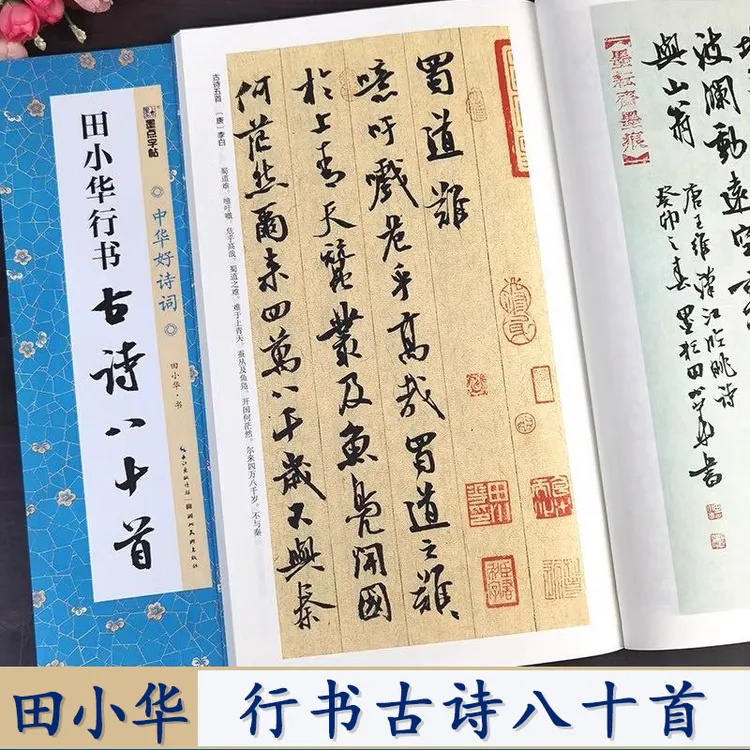 墨点字帖
田小华行书
古诗八十首
中华好诗词
田小华·书
长江出版传媒
湖北美术出版社
古诗五首 〔唐〕李白
蜀道难。噫吁嚱,危乎高哉。蜀道之难,难于上青天。蚕丛及鱼凫,开国何茫然。尔来四万八千岁,不与秦
蜀道難
噫吁戲危乎高哉蜀道之難〻
於上青天蠶叢及魚鳧開國
何茫然爾来四萬八千歲不與秦
波澜動遠空
與山翁
唐王維漢江临眺诗
癸卯之春
田小华
行书古诗八十首